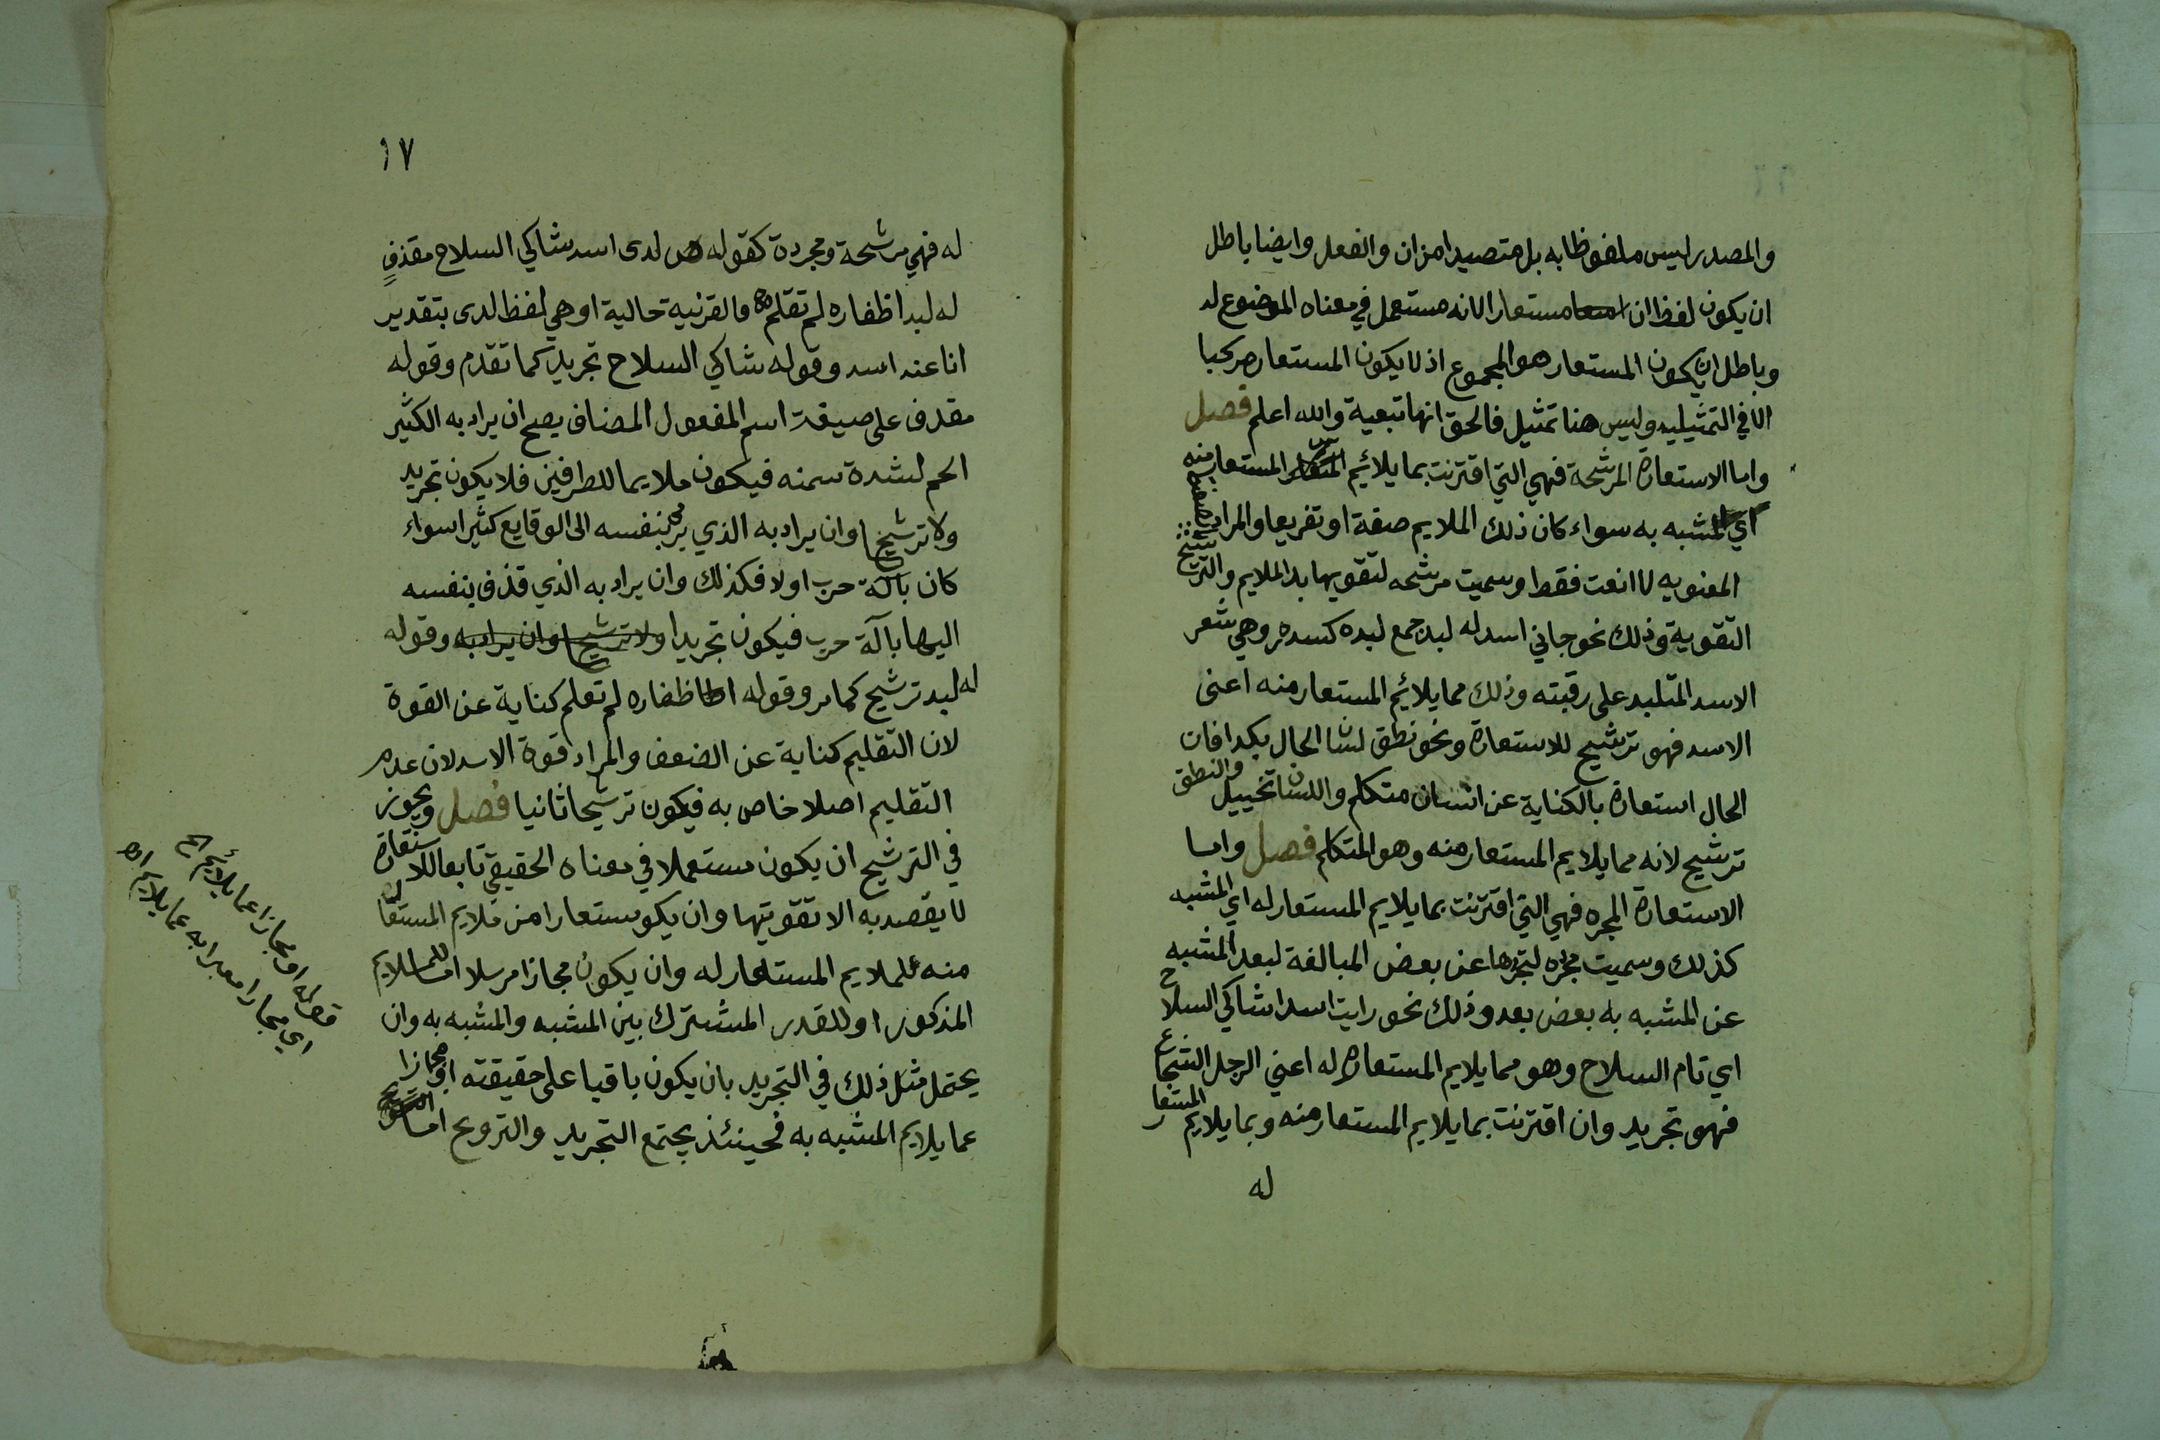 والمصدر ليس ملفوظا به بل متصيدا من ان والفعل وايضا باطل
ان يكون لفظ ان مستعارا لانه مستعمل في معناه الموضوع له
وباطل ان يكون المستعار هو المجموع اذ لا يكون المستعار مركبا
الا في التمثيليه وليس هنا تمثيل فالحق انها تبعية والله اعلم فصل
واما الاستعارة المرشحة فهي التي اقترنت بما يلائم المستعار منه
اي المشبه به سواء كان ذلك الملايم صفة او تفريعا والمراد
المعنويه لا النعت فقط وسميت مرشحه لتقويها بذا الملايم والترشيح
التقوية وذلك نحو جاني اسد له لبد جمع لبده كسدره وهي شعر
الاسد المتلبد على رقبته وذلك مما يلائم المستعار منه اعنى
الاسد فهو ترشيح للاستعارة ونحو نطق لسان الحال بكذا فان
الحال استعارة بالكناية عن انسان متكلم واللسان تخييل والنطق
ترشيح لانه مما يلايم المستعار منه وهو المتكلم فصل واما
الاستعارة المجرده فهي التي اقترنت بما يلايم المستعار له اي المشبه
كذلك وسميت مجرده لتجردها عن بعض المبالغة لبعد المشبه
عن المشبه به بعض بعد وذلك نحو رايت اسدا شاكي السلاح
اي تام السلاح وهو مما يلايم المستعار له اعني الرجل الشجاع
فهو تجريد وان اقترنت بما يلايم المستعار منه وبما يلايم المستعار
له
١٧
له فهي مرشحة ومجردة كقوله لدى اسد شاكي السلاح مقذفٍ
له لبد اظفاره لم تقلم فالقرنيه حالية او هي لفظ لدى بتقدير
انا عند اسد وقوله شاكي السلاح تجريد كما تقدم وقوله
مقذف على صيغة اسم المفعول المضاف يصح ان يراد به الكثير
الحم لشدة سمنه فيكون ملايما للطرفين فلا يكون تجريد
ولا ترشيحا وان يراد به الذي يرمى بنفسه الى الوقايع كثيرا سواء
كان بآلة حرب اولا فكذلك وان يراد به الذي قذف بنفسه
اليها بآلة حرب فيكون تجريدا ولا ترشيحا وان يراد به وقوله
له لبد ترشيح كما مر وقوله اظفاره لم تقلم كناية عن القوة
لان التقليم كناية عن الضعف والمراد قوة الاسد لان عدم
التقليم اصلا خاص به فيكون ترشيحا ثانيا فصل ويجوز
في الترشيح ان يكون مستعملا في معناه الحقيقي تابعا للاستعارة
لا يقصد به الا تقويتها وان يكو مستعارا من ملايم المستعار
منه لملايم المستعار له وان يكون مجازا مرسلا اما للملايم
المذكور او للقدر المشترك بين المشبه والمشبه به وان
يحتمل مثل ذلك في التجريد بان يكون باقيا على حقيقته او مجازا
عما يلايم المشبه به فحينئذ يجتمع التجريد والترويح اما
قوله او مجازا عما يلائم الخ
اي مجازا معبرا به عما يلايم اه